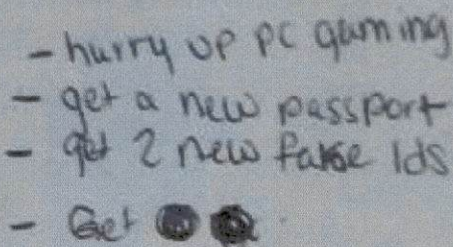 - hurry up pc gaming
- get a new passport
- get 2 new false Ids
- Get